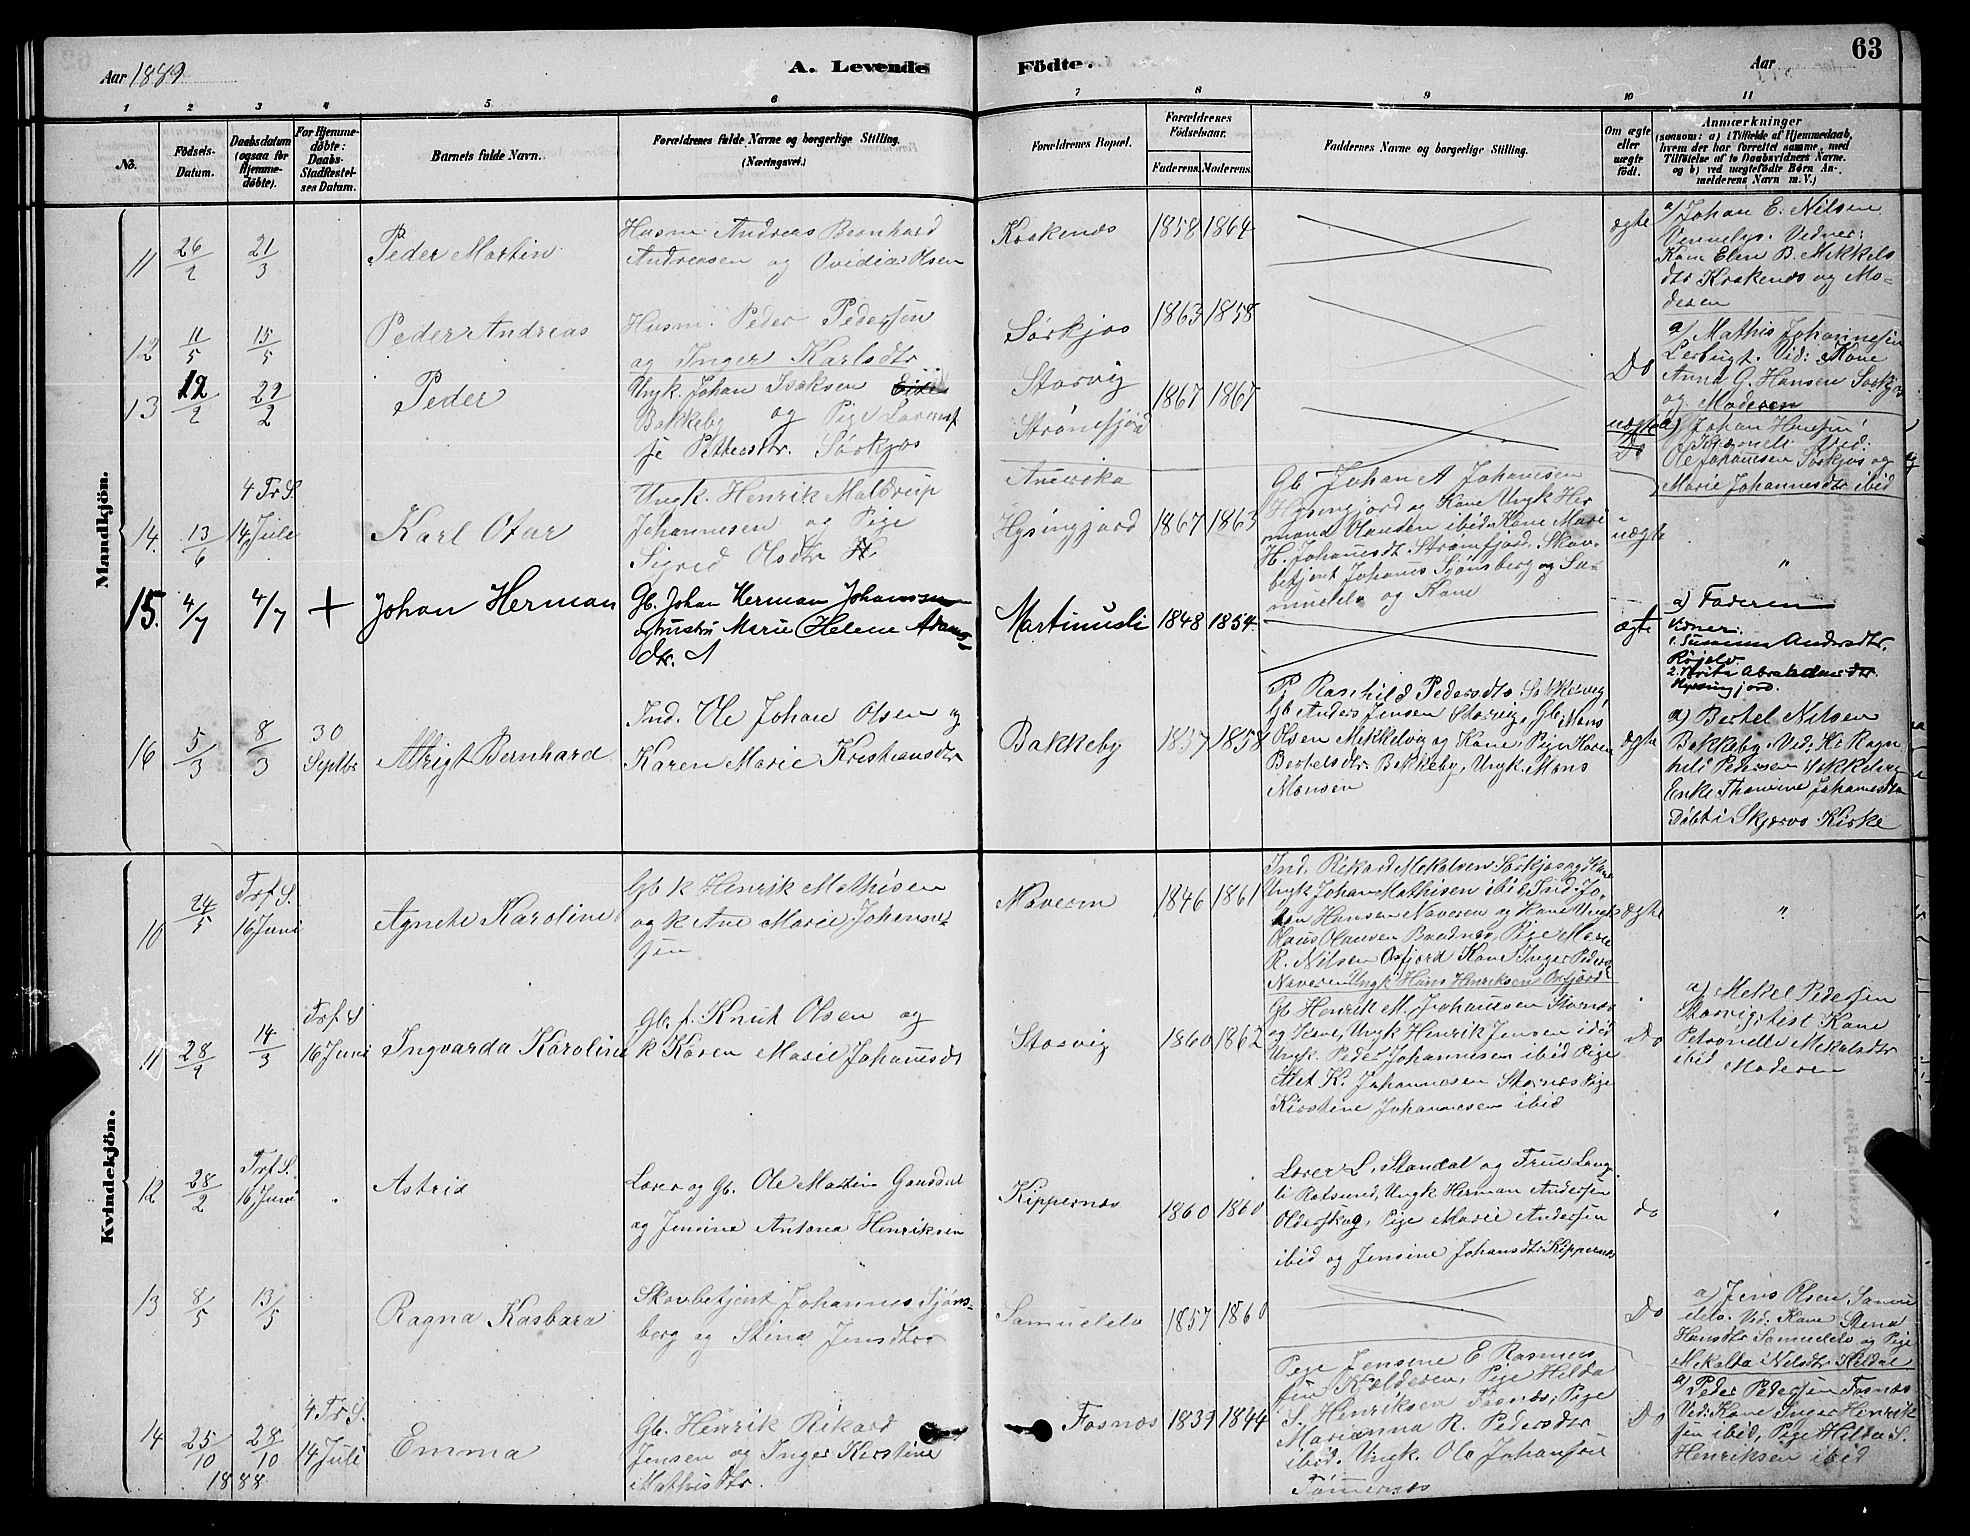 Aar 1889
A. Levende
Födte.
Aar
63
1 2 3 4 5 6 7 8 9 10 11
No.
Födsels-
Datum.
Daabsdatum
(ogsaa for
Hjemme-
døbte).
For Hjemme-
døbte:
Daabs-
Stadfæstel-
ses Datum.
Barnets fulde Navn.
Forældrenes fulde Navne og borgerlige Stilling.
(Næringsvei.)
Forældrenes Bopæl.
Forældrenes
Födselsaar.
Faderens. Moderens.
Faddernes Navne og borgerlige Stilling.
Om ægte
eller
uægte
født.
Anmærkninger
(saasom: a) i Tilfælde af Hjemmedaab,
hvem der har forrettet samme, med
Tilföielse af to Daabsvidners Navne.
og b) ved uægtefödte Börn An-
melderens Navn m. V.)
Mandkjön.
11
26/2
21/3
Peder Martin
Husm. Andreas Bernhard
Andreasen og Ovidia Olsen
Krakenes
1858 1864
ægte
a) Johan E. Nilsen
Vidner:
Kone Elen B. Mikkels
dtr Krakenes og Mo-
deren
12
11/5
15/5
Peder Andreas
Husm. Peder Pedersen
og Inger Karlsdtr
Sørkjos
1863 1858
Do
a) Mathis Johannesen
Lerbugt. Vid: Kone
Anna G. Hansen Sørkjos
og Moderen
13
12/2
22/2
Peder
Ungk. Johan Isaksen
Bakkeby og Pige Lorent
se Pettersdtr. Sörkjos
Storvig
Strømfjord
1867 1867
uægte
Do
a) Johan
Ole Johannesen Sørkjos og
Marie Johannesdtr ibid
14.
13/6
4 Tr S.
14 Juli
Karl Otar
Ungk. Henrik Maldrup
Johannesen og Pige
Sigrid Olsdtr H.
Amerika
Hysingjord
1867 1863
Gb Johan A Johansen
Hysingjord og Kone Ungk Her
mand Hansen ibid Kone Mari
H. Johansdt Strømfjord, Skov-
betjent Johannes Sjønsberg og Sa-
muelelv og Kone
uægte
"
15.
4/7
4/7
+
Johan Herman
Gb. Johan Herman Johanssen
og hustru Marie Helene Adams-
dtr.
Martinusli
1848 1854.
ægte
a) Faderen
Vidner:
Andersdtr.
Røjelv
2. Brita Abrahamsdtr
Hysingjord.
16
5/3
8/3
30
Septbr
Altrigt Bernhard
Ind. Ole Johan Olsen og
Karen Marie Kristiansdtr
Bakkeby
1837 1858
P. Ragnhild Pedersdtr Sokkelvig,
Gb Anders Jensen Storvig, Gb. Mons
Olsen Mikkelvig og Kone, Pige Karen
Bertelsdtr. Bakkeby, Ungk. Mons
Monsen
ægte
a) Bertel Nilsen
Bakkeby. Vid: K. Ragn
hild Pedersen Sokkelvig
Enke Thomine Johannesdtr
Döbt i Skjærvø Kirke
Kvindekjön.
10
24/5
Trf. S.
16 Juni
Agnete Karoline
Gb k Henrik Mathisen
og k Ane Marie Johanne-
sen
Naveren
1846 1861
Ind. Rikard Mekalsen Sørkjos og Kone
Ungk Johan Mathisen ibid Ind. Jo-
han Hansen Naveren og Kone Ungk
Olaus Olausen Baadnes, Pige Marie
R. Nilsen Oxfjord Kone Inger Peders
Naveren Ungk Hans Henriksen Oxfjord
ægte
"
11
28/2
14/3
Trf S
16 Juni
Ingvarda Karoline
Gb. f. Knut Olsen og
k Karen Marie Johansdt
Storvig
1860 1862
Gb Henrik M. Johannsen Stornes
og Kone, Ungk Henrik Jensen ibid
Ungk. Peder Johannesen ibid Pige
Alet K. Johannesen Stornes Pige
Kirstine Johannesen ibid
Do
a) Mekel Pedersen
Storvig tist Kone
Petronelle Mekalsdtr
ibid
Moderen
12
28/2
Trf. S.
16 Juni
"
Astrid
Lærer og Gb. Ole Martin Gausdal
og Jensine Antona Henriksen
Kippernes
1860 1860
Lærer L. Standal og Frue Lang-
li Rotsund, Ungk Herman Andersen
Olderskog, Pige Marie Andersen
ibid og Jensine Johansdtr Kippernes
do
"
13
8/5
13/5
Ragna Kasbara
Skovbetjent Johannes Sjøns-
berg og Stina Jensdtr
Samuelelv
1857 1860
Do
a) Jens Olsen Samu
elelv. Vid: Kone Stena
Hansdtr Samuelelv og Pige
Mekalda Nilsdtr Kildal
14
25/10
28/10
1888
4 Tr S.
14 Juli
Emma
Gb. Henrik Rikard
Jensen og Inger Kirstine
Mathisdtr.
Fosnæs
1839 1844
Pige Jensine E Rasmus
sen Kjelderen, Pige Hilda
S. Henriksen Fosnes, Pige
Marianna R. Pedersdtr
ibid. Ungk. Ole Johansen
Do
a) Peder Pedersen Fosnæs
Vid: Kone Inger Henrik
sen ibid, Pige Hilda S.
Henriksen ibid